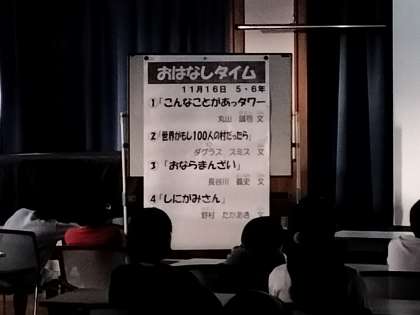 おはなしタイム
11月16日 5・6年
1「こんなことがあっタワー
丸山 誠司 文
2「世界がもし100人の村だったら」
ダグラス スミス 文
3「おならまんざい」
長谷川 義史 文
4「しにがみさん」
野村 たかあき 文